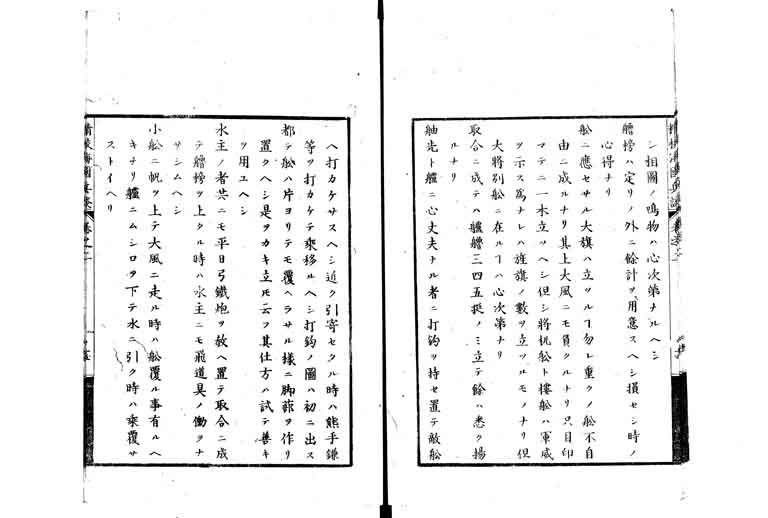 シ相圖ノ鳴物ハ心次第ナルヘシ
艪榜ハ定リノ外ニ餘計ヲ用意スヘシ損セシ時ノ
心得ナリ
舩ニ應セサル大旗ハ立ツルヿ勿レ重クノ舩不自
由ニ成ルナリ其上大風ニモ負クルナリ只目印
マテニ一本立ツヘシ但シ將帆舩ト樓舩ハ軍威
ヲ示ス爲ナレハ旌旗ノ數ヲ立ツルモノナリ但
大將別舩ニ在ルヿハ心次第ナリ
取合ニ成テハ艫艪三四五挺ノミ立テ餘ハ悉ク揚
ルナリ
舳先ト艫ニ心丈夫ナル者ニ打鈎ヲ持セ置テ敵舩
ヘ打カケサスヘシ近ク引寄セタル時ハ熊手鎌
等ヲ打カケテ乘移ルヘシ打鈎ノ圖ハ初ニ出ス
都テ舩ハ片ヨリテモ覆ヘラサル樣ニ脚蔀ヲ作リ
置クヘシ是ヲカキ立モ云フ其仕方ハ試テ善キ
ヲ用ユヘシ
水主ノ者共ニモ平日弓鐵炮ヲ敎ヘ置テ取合ニ成
テ艪榜ヲ上クル時ハ水主ニモ飛道具ノ働ヲナ
サシムヘシ
小舩ニ帆ヲ上テ大風ニ走ル時ハ舩覆ル事有ルヘ
キナリ艫ニムシロヲ下テ水ニ引ク時ハ乘覆サ
ストイヘリ